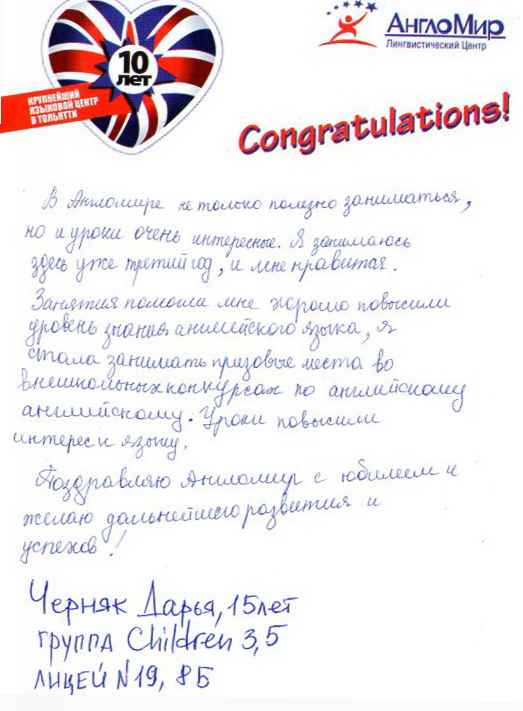 10
лет
КРУПНЕЙШИЙ
ЯЗЫКОВОЙ ЦЕНТР
В ТОЛЬЯТТИ
АнглоМир
Лингвистический Центр
Congratulations!
В Англомире не только полезно заниматься,
но и уроки очень интересные. Я занимаюсь
здесь уже третий год, и мне нравится.
Занятия помогли мне хорошо повысили
уровень знания английского языка, я
стала занимать призовые места во
внешкольных конкурсах по английскому
английскому. Уроки повысили
интерес к языку.
Поздравляю Англомир с юбилеем и
желаю дальнейшего развития и
успехов!
Черняк Дарья, 15 лет
группа Children 3,5
ЛИЦЕЙ №19, 8Б